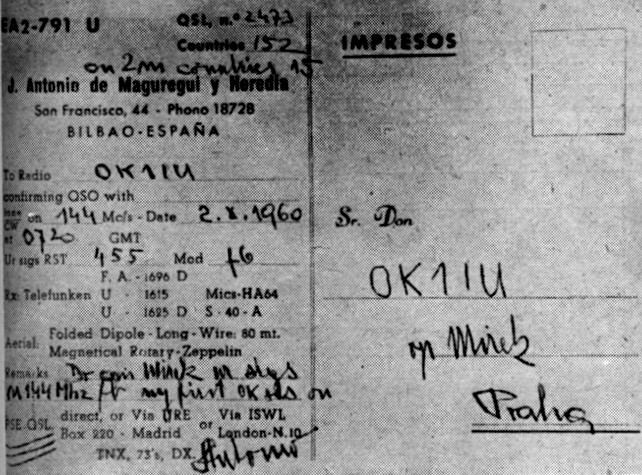 EA2-791 U
QSL, n.º 2473
Countries 152
on 2m countries 15
J. Antonio de Maguregui y Heredia
San Francisco, 44 - Phono 18728
BILBAO-ESPAÑA
To Radio OK1IU
confirming QSO with
CW on 144 Mc/s - Date 2.X.1960
at 0720 GMT
Ur sigs RST 455 Mod f6
F. A. - 1696 D
Rx: Telefunken U - 1615 Mics-HA64
U - 1625 D S-40-A
Aerial: Folded Dipole-Long-Wire: 80 mt.
Magnetical Rotary-Zeppelin
Remarks Dr om Mirek ur sigs
144 Mhz my first OK on
PSE QSL direct, or Via URE or Via ISWL
Box 220 - Madrid London-N.10
TNX, 73's, DX. Antonio
IMPRESOS
Sr. Don
OK1IU
op Mirek
Praha